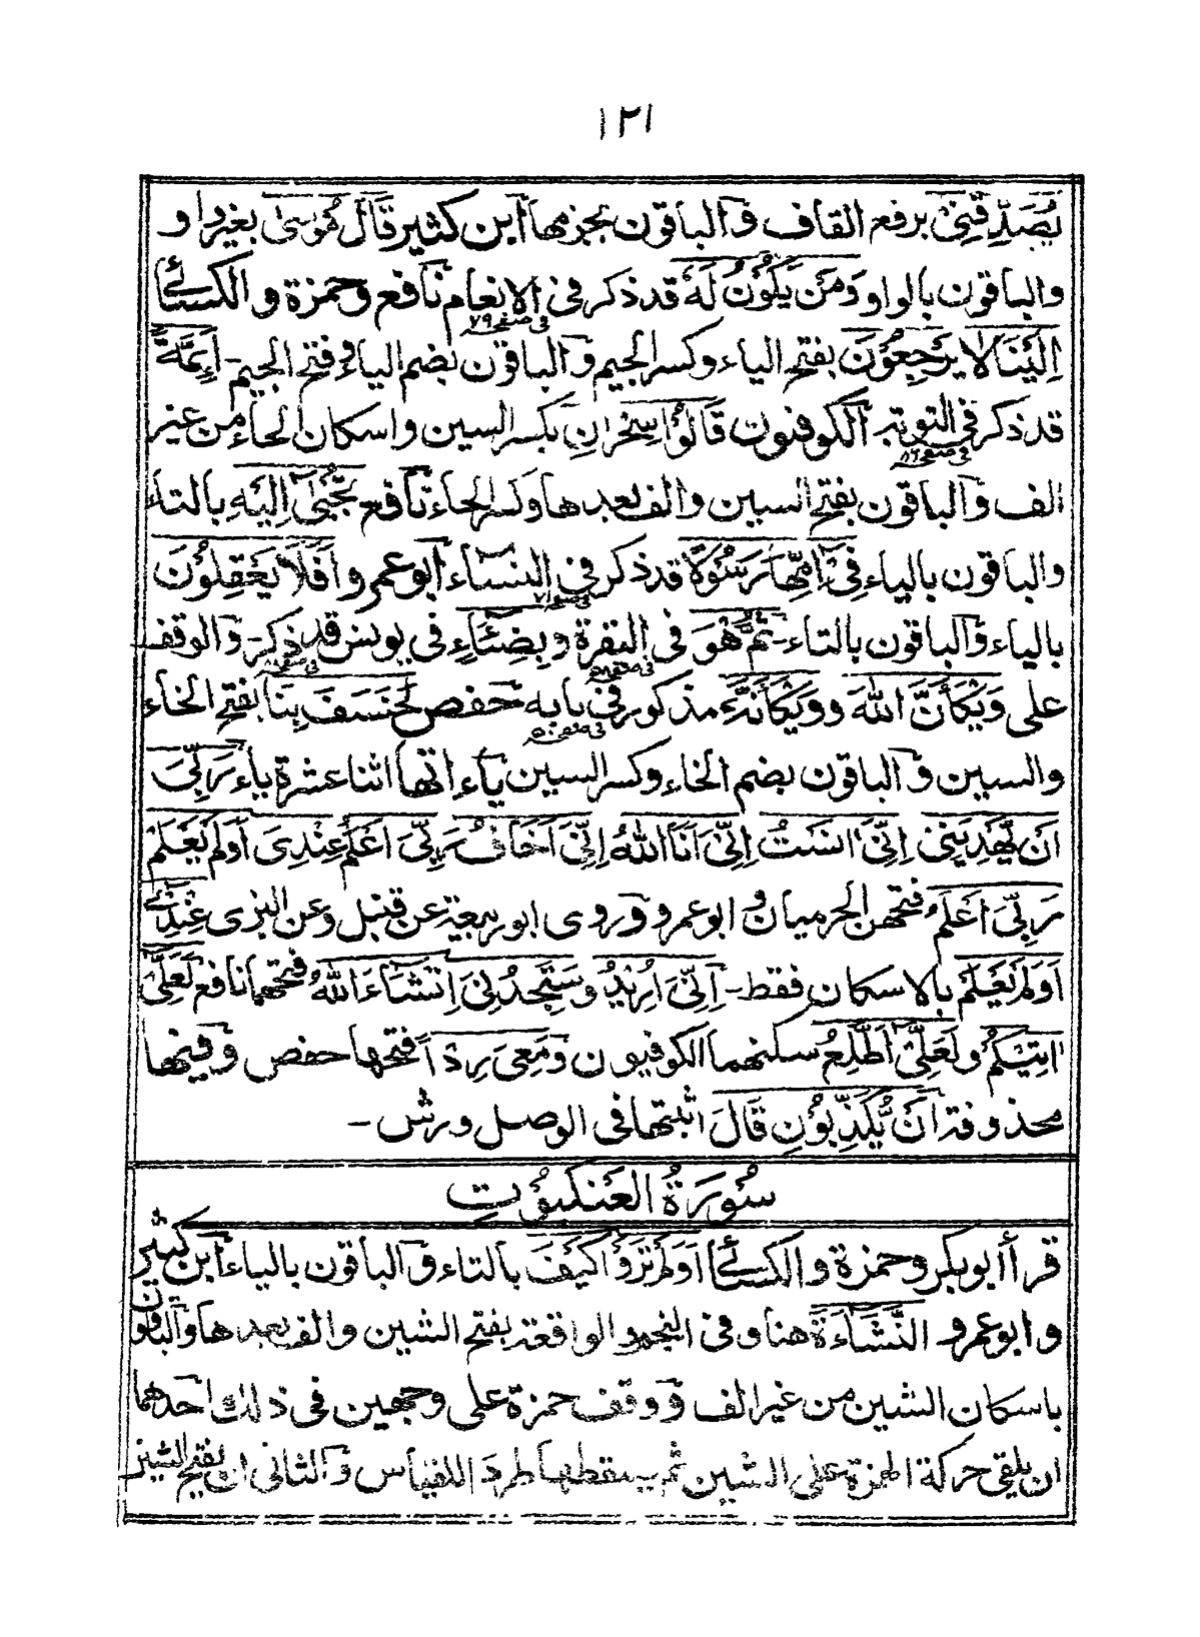 ١٢١
يُصَدِّقُنِىْ برفع القاف و الباقون بجزمها ابن كثير قَالَ مُوْسٰى بغير واو
والباقون بالواو وَمَنْ يَّكُوْنُ لَهٗ قد ذكر فى الانعام نافع وحمزة و الكسائى
فى صفحه ٧٩
اِلَيْنَا لَا يَرْجِعُوْنَ بفتح الياء وكسر الجيم و الباقون بضم الياء و فتح الجيم - اَءِمَّةً
قد ذكر فى التوبة الكوفيون قَالُوْا سِحْرَانِ بكسر السين و اسكان الحاء من غير
فى صفحه ٨٦
الف و الباقون بفتح السين والف بعدها وكسر الحاء نافع تُجْبٰى اِلَيْهِ بالتاء
والباقون بالياء فِىْ اُمِّهَا رَسُوْلًا قد ذكر فى النساء ابو عمرو اَفَلَا يَعْقِلُوْنَ
فى صفحه ٧١
بالياء و الباقون بالتاء - ثُمَّ هُوَ فى البقرة و بِضِئَاءٍ فى يونس قد ذكر - و الوقف
على وَيْكَاَنَّ اللّٰهَ و وَيْكَاَنَّهٗ مذكور فى بابه حفص لَخَسَفَ بِنَا بفتح الخاء
والسين و الباقون بضم الخاء وكسر السين ياءاتها اثنا عشرة ياء رَبِّىَ
اَنْ يَّهْدِيَنِىْ اِنِّىَ اٰنَسْتُ اِنِّىَ اَنَا اللّٰهُ اِنِّىَ اَخَافُ رَبِّىَ اَعْلَمُ عِنْدِىَ اَوَلَمْ يَعْلَمْ
رَبِّىَ اَعْلَمُ فتحهن الحرميان و ابو عمرو و روى ابو ربيعة عن قنبل وعن البزى عِنْدِىْ
اَوَلَمْ يَعْلَمْ بالاسكان فقط - اِنِّىَ اُرِيْدُ و سَتَجِدُنِىَ اِنْشَاءَ اللّٰهُ فتحهما نافع لَعَلِّىْ
اٰتِيْكُمْ و لَعَلِّىْ اَطَّلِعُ سكنهما الكوفيون و مَعِىَ رِدْاً فتحها حفص و فيها
محذوفة اَنْ يُّكَذِّبُوْنِ قَالَ اثبتها فى الوصل ورش -
سُوْرَةُ الْعَنْكَبُوْتِ
قرأ ابو بكر وحمزة و الكسائى اَوَلَمْ تَرَوْا كَيْفَ بالتاء و الباقون بالياء ابن كثير
و ابو عمرو النَّشَاءَةَ هنا و فى النجم و الواقعة بفتح الشين والف بعدها والباقون
باسكان الشين من غير الف و وقف حمزة على وجهين فى ذلك احدهما
ان يلقى حركة الهمزة على الشين ثم يسقطها طردًا للقياس و الثانى ان يفتح الشين